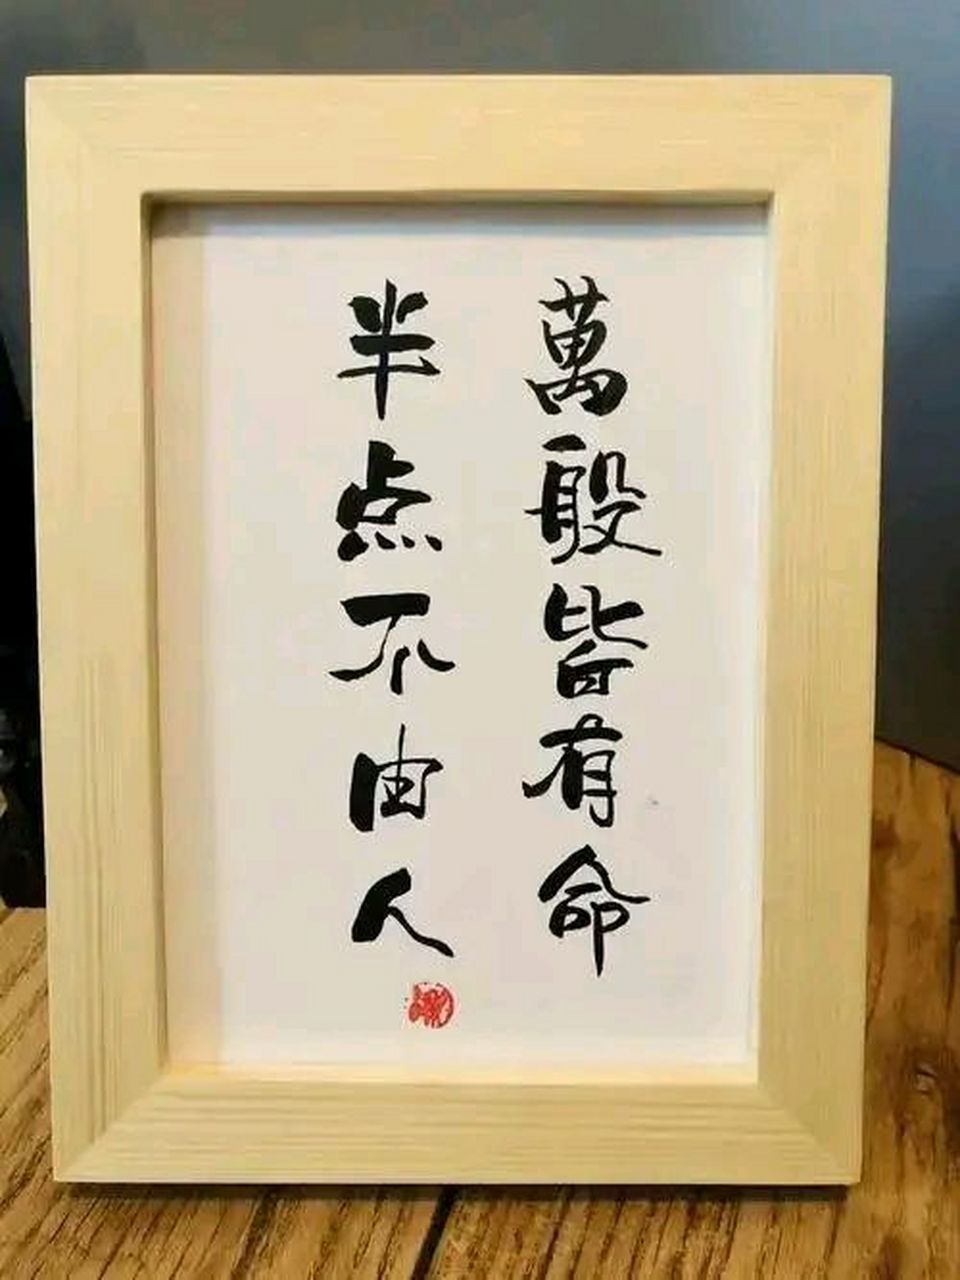 萬般皆有命
半点不由人